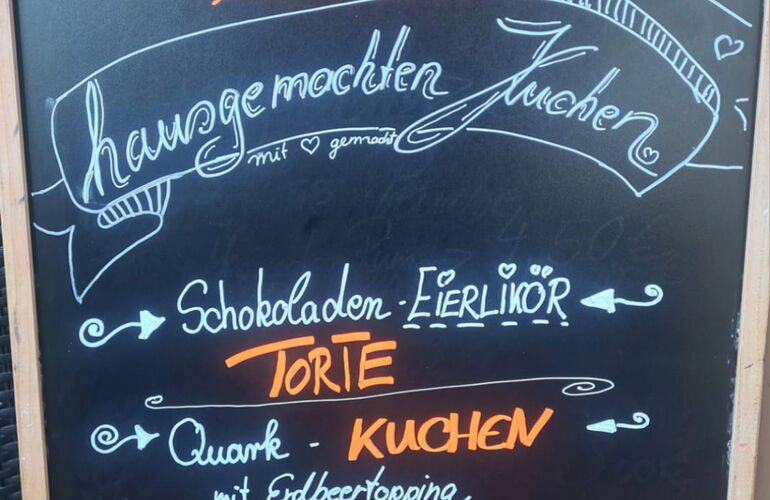 hausgemachten Kuchen
mit ♡ gemacht
Schokoladen - EIERLIKÖR
TORTE
Quark - KUCHEN
mit Erdbeertopping